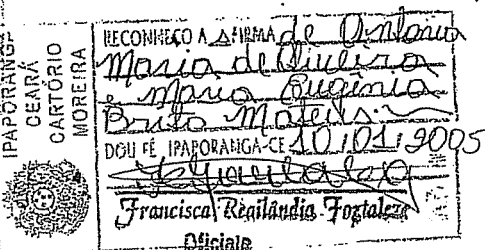 IPAPORANGA
CEARÁ
CARTÓRIO
MOREIRA
RECONHEÇO A FIRMA de Antonia
Maria de Oliveira
e Maria Eugênia
Brito Mateus
DOU FÉ IPAPORANGA-CE 10/01/2005
Francisca Regilândia Fortaleza
Oficiala